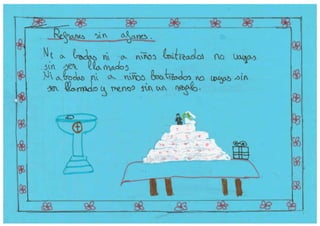 Refranes sin afanes.
Ni a bodas ni a niños bautizados no vayas
sin ser llamados
Ni a bodas ni a niños bautizados no vayas sin
ser llamado y menos sin un regalo.